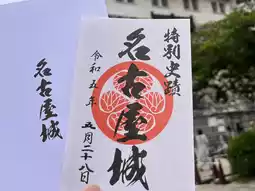 特別史蹟
名古屋城
令和五年
五月二十八日
名古屋城